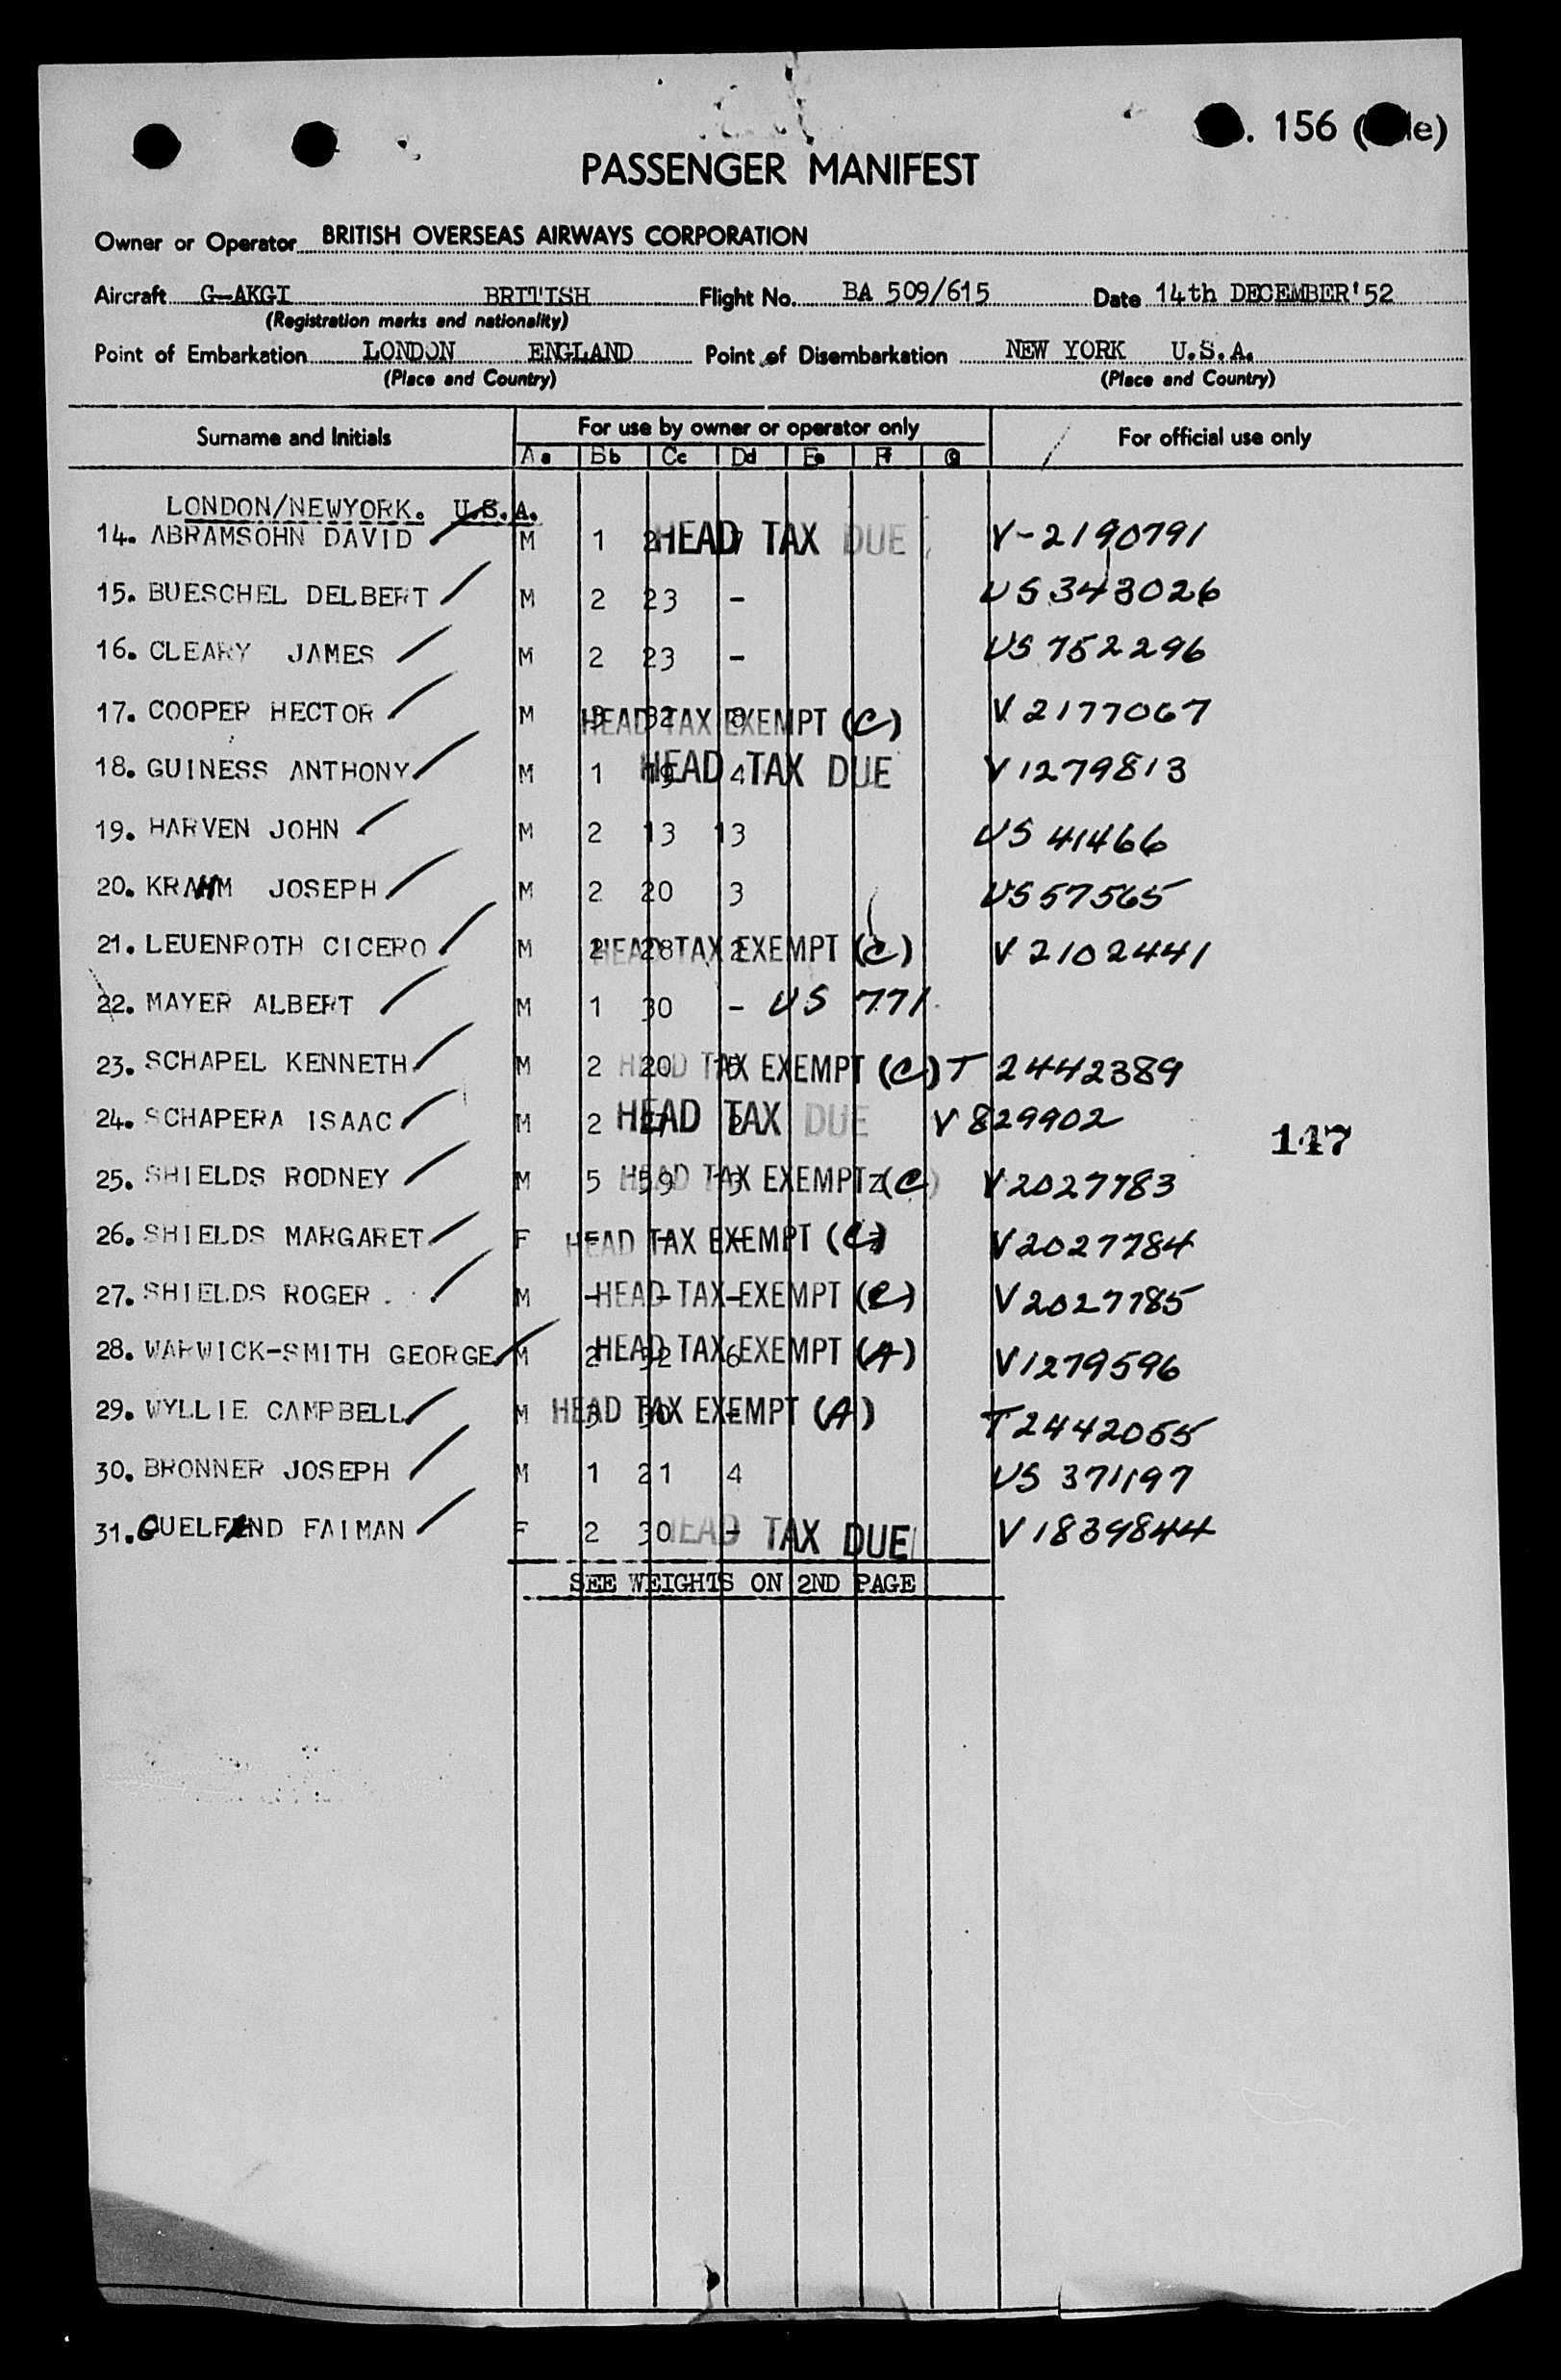 . 156 ( le)
PASSENGER MANIFEST
Owner or Operator BRITISH OVERSEAS AIRWAYS CORPORATION
Aircraft G-AKGI BRITISH Flight No. BA 509/615 Date 14th DECEMBER'52
(Registration marks and nationality)
Point of Embarkation LONDON ENGLAND Point of Disembarkation NEW YORK U.S.A.
(Place and Country) (Place and Country)
Surname and Initials For use by owner or operator only For official use only
Aa Bb Cc Dd Ee Ff G
LONDON/NEWYORK. U.S.A.
14. ABRAMSOHN DAVID M 1 HEAD TAX DUE V-2190791
15. BUESCHEL DELBERT M 2 23 - US 343026
16. CLEARY JAMES M 2 23 - US 752296
17. COOPER HECTOR M 3 32 8 HEAD TAX EXEMPT (C) V 2177067
18. GUINESS ANTHONY M 1 19 4 HEAD TAX DUE V 1279813
19. HARVEN JOHN M 2 13 13 US 41466
20. KRAHM JOSEPH M 2 20 3 US 57565
21. LEUENROTH CICERO M 2 28 2 HEAD TAX EXEMPT (C) V 2102441
22. MAYER ALBERT M 1 30 - US 771
23. SCHAPEL KENNETH M 2 20 HEAD TAX EXEMPT (C) T 2442389
24. SCHAPERA ISAAC M 2 27 HEAD TAX DUE V 829902
147
25. SHIELDS RODNEY M 5 59 HEAD TAX EXEMPT (C) V2027783
26. SHIELDS MARGARET F - - - HEAD TAX EXEMPT (C) V2027784
27. SHIELDS ROGER. M - - - HEAD TAX EXEMPT (C) V2027785
28. WARWICK-SMITH GEORGE M 2 32 6 HEAD TAX EXEMPT (A) V1279596
29. WYLLIE CAMPBELL M 3 30 - HEAD TAX EXEMPT (A) T2442055
30. BRONNER JOSEPH M 1 21 4 US 371197
31. GUELFAND FAIMAN F 2 30 - HEAD TAX DUE V 1839844
SEE WEIGHTS ON 2ND PAGE